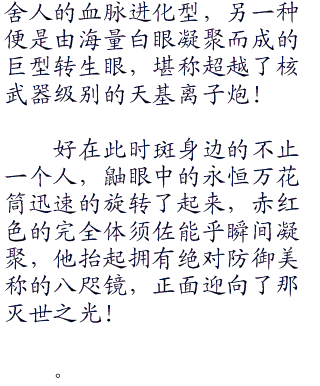 舍人的血脉进化型，另一种
便是由海量白眼凝聚而成的
巨型转生眼，堪称超越了核
武器级别的天基离子炮！
好在此时斑身边的不止
一个人，鼬眼中的永恒万花
筒迅速的旋转了起来，赤红
色的完全体须佐能乎瞬间凝
聚，他抬起拥有绝对防御美
称的八咫镜，正面迎向了那
灭世之光！
。